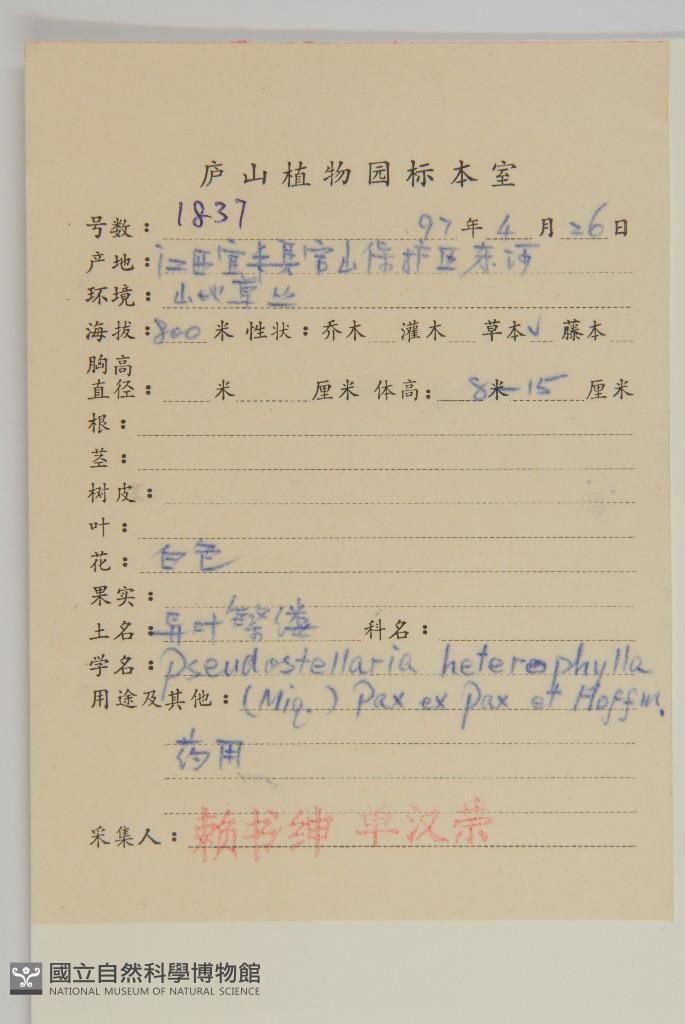 庐山植物园标本室
号数：1837 97年4月26日
产地：江西宜丰县官山保护区东河
环境：山地草丛
海拔：800米 性状：乔木 灌木 草本√ 藤本
胸高
直径： 米 厘米 体高： 8米-15 厘米
根：
茎：
树皮：
叶：
花：白色
果实：
土名：异叶繁缕 科名：
学名：Pseudostellaria heterophylla
用途及其他：(Miq.) Pax ex Pax et Hoffm.
药用
采集人：赖书绅 单汉荣
國立自然科學博物館
NATIONAL MUSEUM OF NATURAL SCIENCE